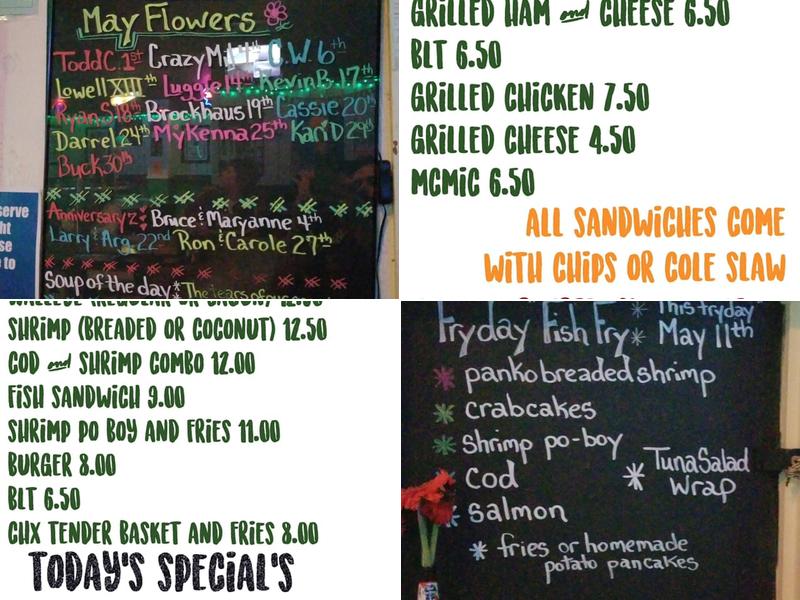 May Flowers
Todd C. 1st Crazy M 4th C.W. 6th
Lowell XIII th Luggie 14th Kevin B. 17th
Ryan S 18th Brockhaus 19th Cassie 20th
Darrel 24th MyKenna 25th Kari D 29th
Buck 30th
Anniversary'z: Bruce & Maryanne 4th
Larry & Arg. 22nd Ron & Carole 27th
Soup of the day * The tears of our
serve
ht
se
e to
GRILLED HAM and CHEESE 6.50
BLT 6.50
GRILLED CHICKEN 7.50
GRILLED CHEESE 4.50
MCMIC 6.50
ALL SANDWICHES COME
WITH CHIPS OR COLE SLAW
SHRIMP (BREADED OR COCONUT) 12.50
COD and SHRIMP COMBO 12.00
FISH SANDWICH 9.00
SHRIMP PO BOY AND FRIES 11.00
BURGER 8.00
BLT 6.50
CHX TENDER BASKET AND FRIES 8.00
TODAY'S SPECIAL'S
Fryday Fish Fry * This fryday
May 11th
* panko breaded shrimp
* crabcakes
* shrimp po-boy
* Cod
* Tuna Salad
Wrap
* salmon
* fries or homemade
potato pancakes